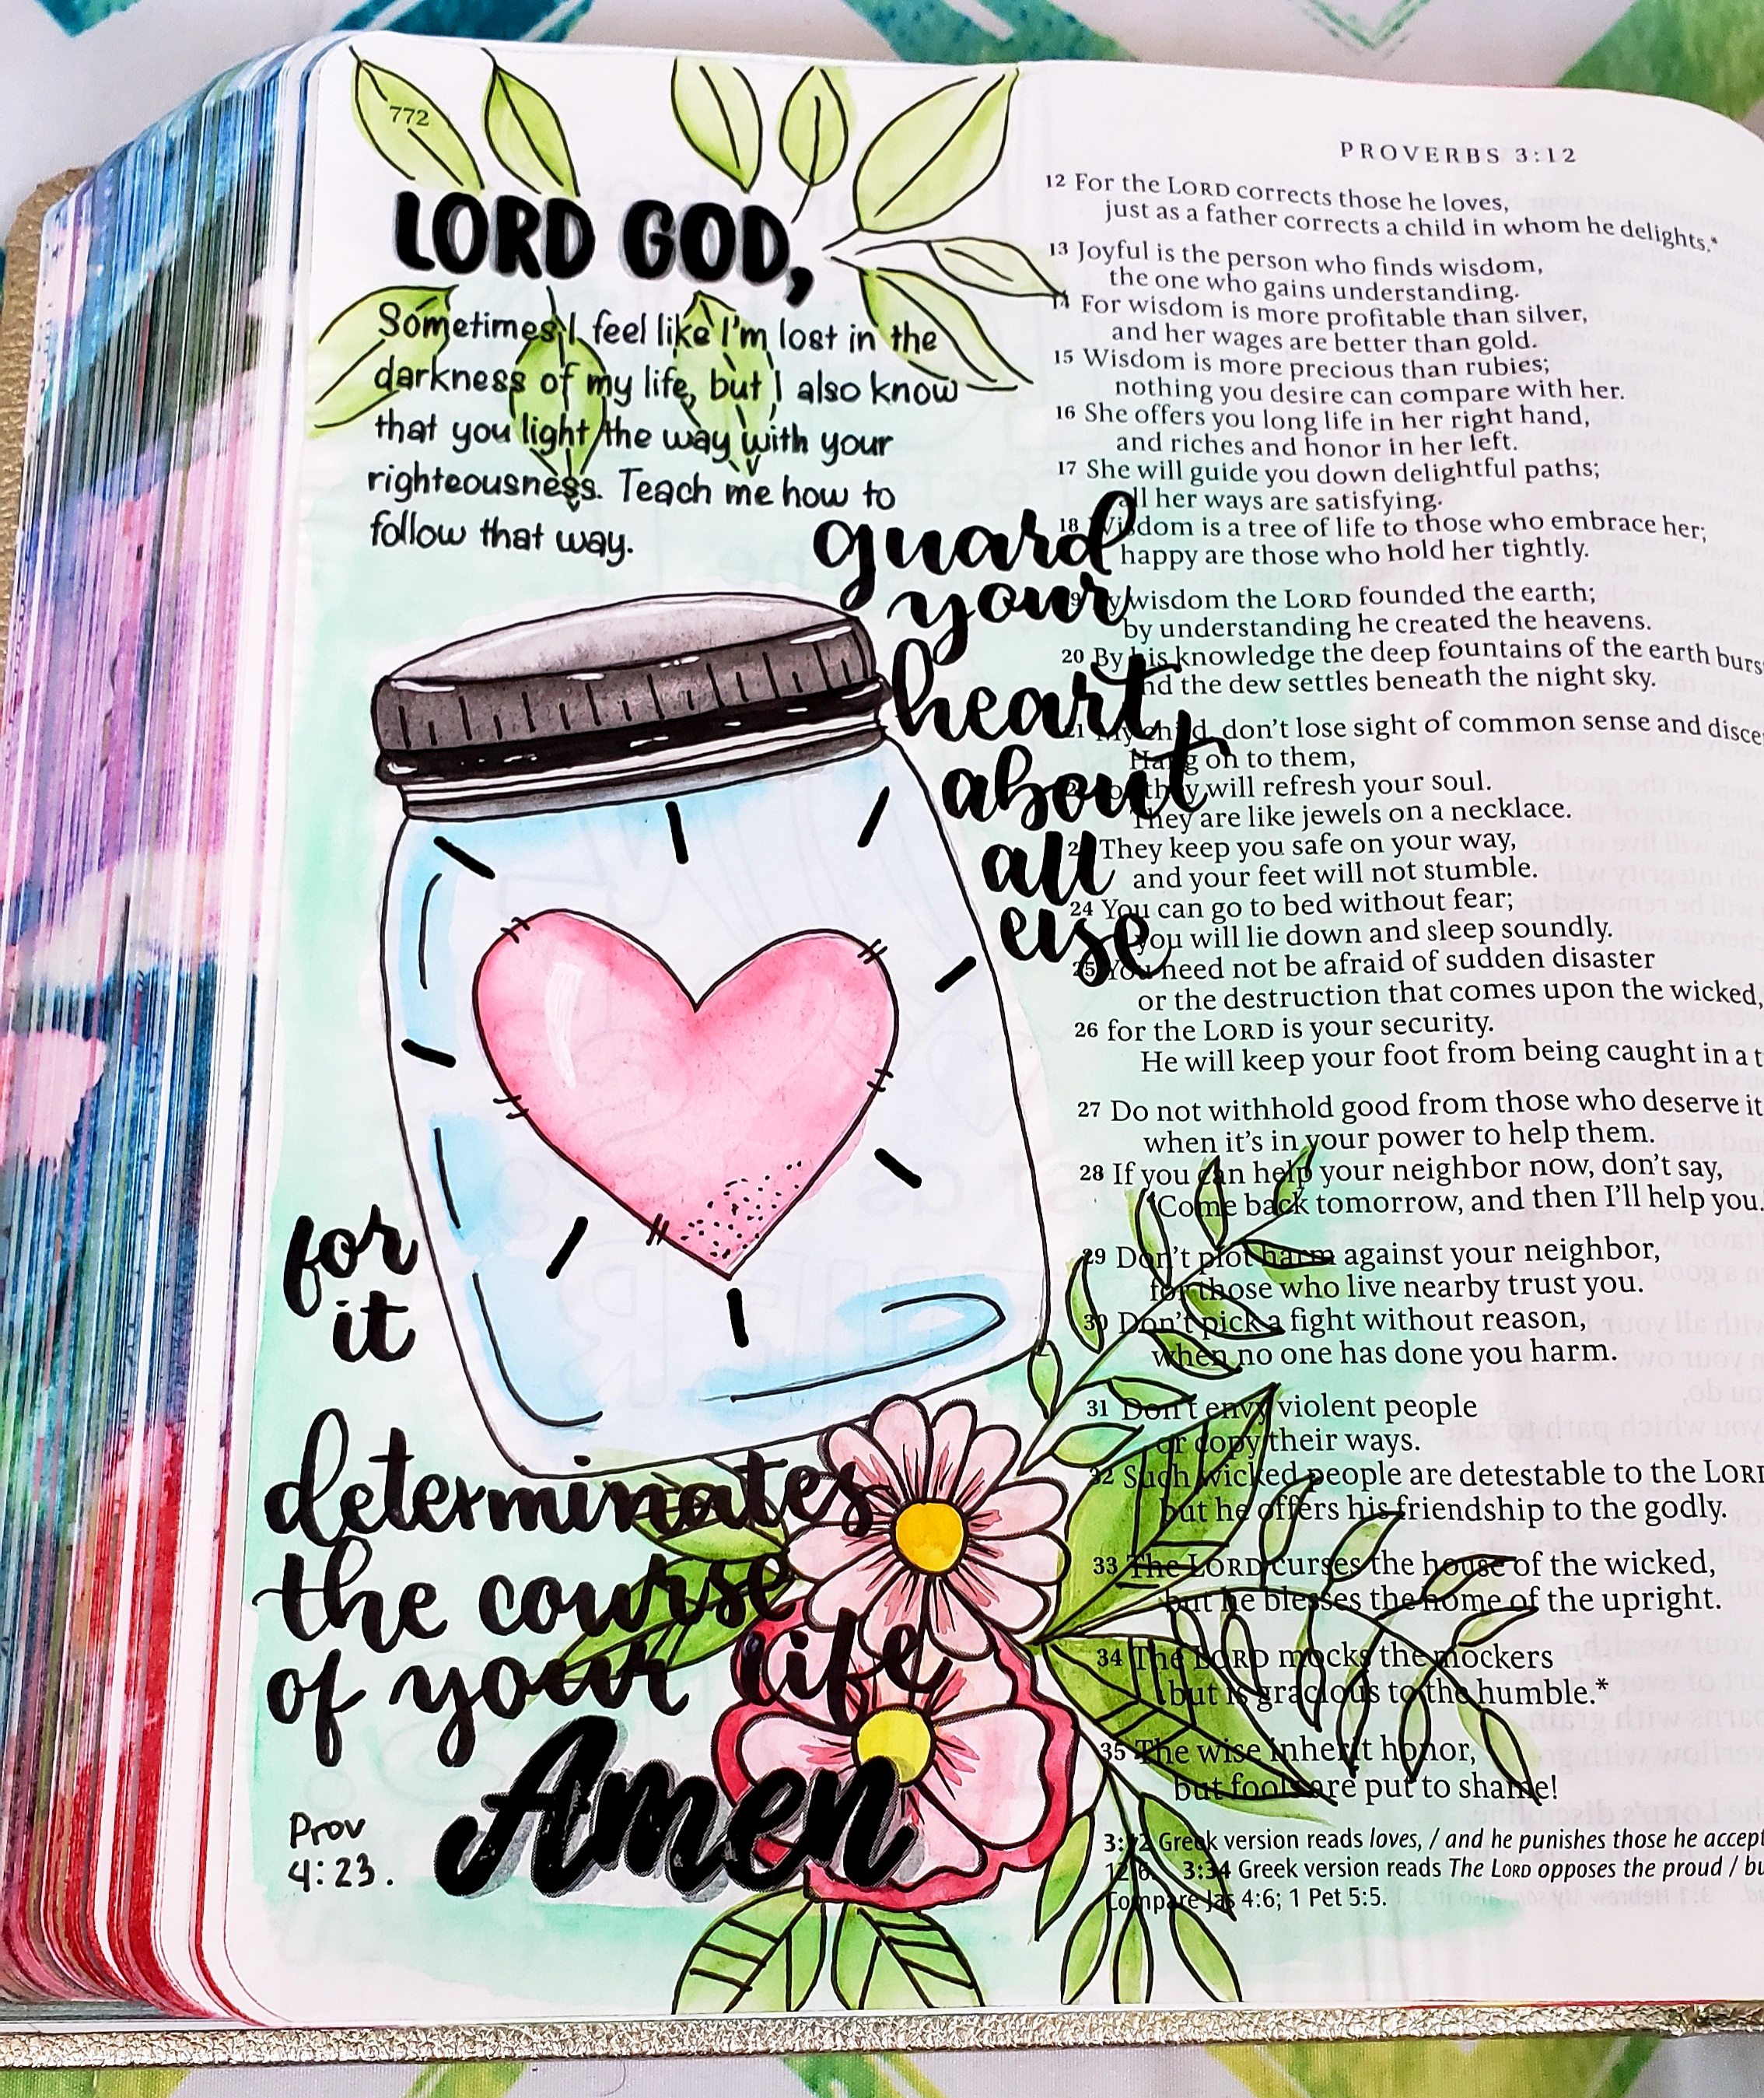 772
LORD GOD,
Sometimes I feel like I'm lost in the
darkness of my life, but I also know
that you light the way with your
righteousness. Teach me how to
follow that way.
guard
your
heart
about
all
else
for
it
determinates
the course
of your life
Amen
Prov
4:23.
PROVERBS 3:12
12 For the LORD corrects those he loves,
just as a father corrects a child in whom he delights.*
13 Joyful is the person who finds wisdom,
the one who gains understanding.
14 For wisdom is more profitable than silver,
and her wages are better than gold.
15 Wisdom is more precious than rubies;
nothing you desire can compare with her.
16 She offers you long life in her right hand,
and riches and honor in her left.
17 She will guide you down delightful paths;
all her ways are satisfying.
18 Wisdom is a tree of life to those who embrace her;
happy are those who hold her tightly.
wisdom the LORD founded the earth;
by understanding he created the heavens.
20 By his knowledge the deep fountains of the earth burs
and the dew settles beneath the night sky.
My child, don't lose sight of common sense and
Hang on to them,
they will refresh your soul.
They are like jewels on a necklace.
They keep you safe on your way,
and your feet will not stumble.
24 You can go to bed without fear;
you will lie down and sleep soundly.
25 You need not be afraid of sudden disaster
or the destruction that comes upon the wicked,
26 for the LORD is your security.
He will keep your foot from being caught in a t
27 Do not withhold good from those who deserve it
when it's in your power to help them.
28 If you can help your neighbor now, don't say,
"Come back tomorrow, and then I'll help you.
29 Don't plot harm against your neighbor,
for those who live nearby trust you.
30 Don't pick a fight without reason,
when no one has done you harm.
31 Don't envy violent people
or copy their ways.
32 Such wicked people are detestable to the LORD
but he offers his friendship to the godly.
33 The LORD curses the house of the wicked,
but he blesses the home of the upright.
34 The LORD mocks the mockers
but is gracious to the humble.*
35 The wise inherit honor,
but fools are put to shame!
3:12 Greek version reads loves, / and he punishes those he accept
12:6. 3:34 Greek version reads The LORD opposes the proud / bu
Compare Jas 4:6; 1 Pet 5:5.